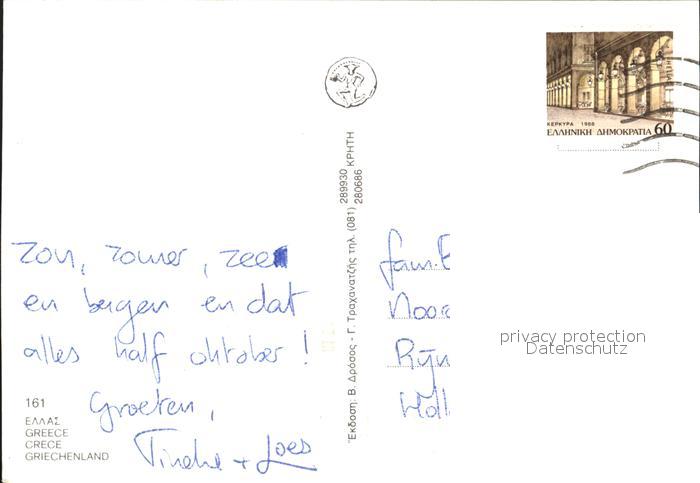 ΚΕΡΚΥΡΑ 1988
ΕΛΛΗΝΙΚΗ ΔΗΜΟΚΡΑΤΙΑ 60
Zon, zomer, zee
en bergen en dat
alles half oktober!
Groeten,
Tineke + Loes
161
ΕΛΛΑΣ
GREECE
CRECE
GRIECHENLAND
Έκδοση: Β. Δρόσος - Γ. Τραχανατζής τηλ. (081) 289930 ΚΡΗΤΗ
280686
fam.
Noor
Rijn
Holl
privacy protection
Datenschutz